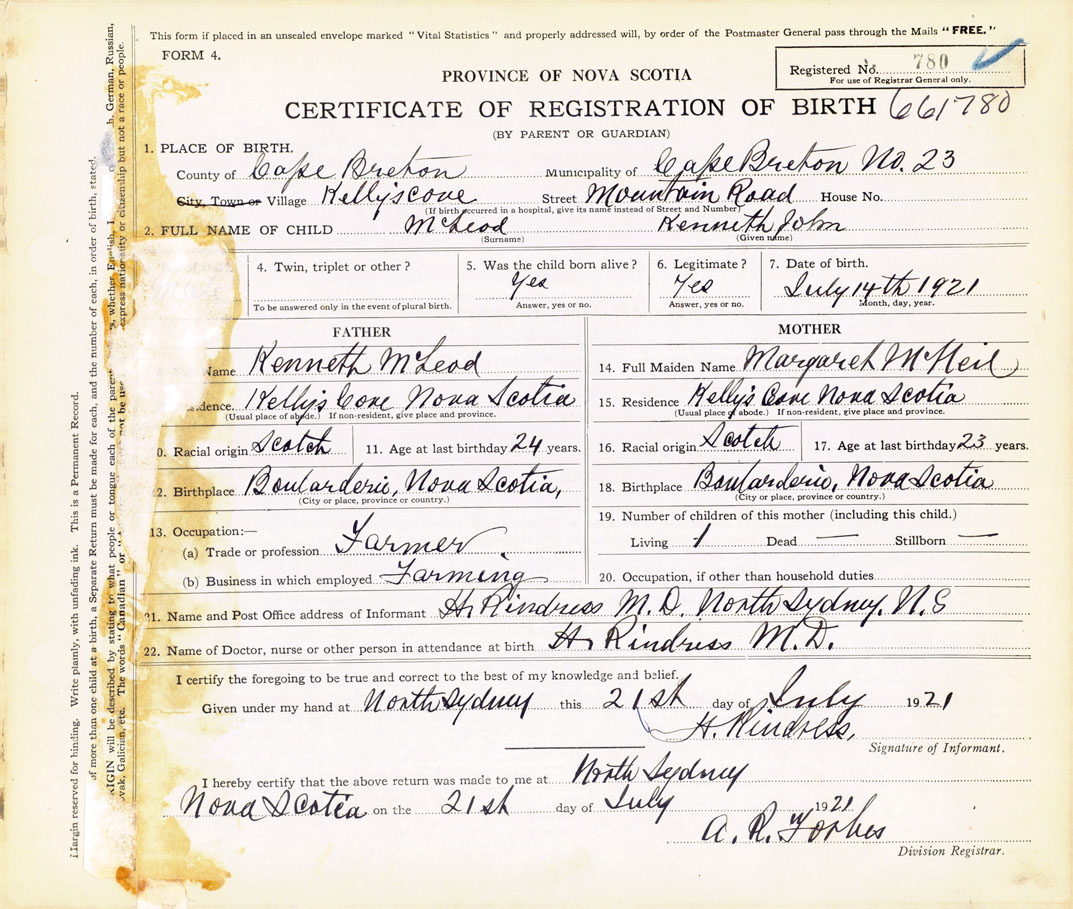 This form if placed in an unsealed envelope marked "Vital Statistics" and properly addressed will, by order of the Postmaster General pass through the Mails "FREE."
FORM 4.
Registered No. 780
For use of Registrar General only.
PROVINCE OF NOVA SCOTIA
CERTIFICATE OF REGISTRATION OF BIRTH 661780
(BY PARENT OR GUARDIAN)
1. PLACE OF BIRTH.
County of Cape Breton Municipality of Cape Breton No. 23
City, Town or Village Kelly's cove Street Mountain Road House No.
(If birth occurred in a hospital, give its name instead of Street and Number)
2. FULL NAME OF CHILD McLeod Kenneth John
(Surname) (Given name)
4. Twin, triplet or other? 5. Was the child born alive? 6. Legitimate? 7. Date of birth.
Yes Yes July 14th 1921
To be answered only in the event of plural birth. Answer, yes or no. Answer, yes or no. Month, day, year.
FATHER
Name Kenneth McLeod
idence. Kelly's Cove Nova Scotia
(Usual place of abode.) If non-resident, give place and province.
0. Racial origin Scotch 11. Age at last birthday 24 years.
2. Birthplace Boularderie, Nova Scotia,
(City or place, province or country.)
13. Occupation:—
(a) Trade or profession Farmer
(b) Business in which employed Farming
MOTHER
14. Full Maiden Name Margaret McNeil
15. Residence Kelly's Cove Nova Scotia
(Usual place of abode.) If non-resident, give place and province.
16. Racial origin Scotch 17. Age at last birthday 23 years.
18. Birthplace Boularderie, Nova Scotia
(City or place, province or country.)
19. Number of children of this mother (including this child.)
Living 1 Dead — Stillborn —
20. Occupation, if other than household duties
21. Name and Post Office address of Informant H. Rindress M.D. North Sydney. N.S
22. Name of Doctor, nurse or other person in attendance at birth H. Rindress M.D.
I certify the foregoing to be true and correct to the best of my knowledge and belief.
Given under my hand at North Sydney this 21st day of July 1921
H. Rindress,
Signature of Informant.
I hereby certify that the above return was made to me at North Sydney
Nova Scotia on the 21st day of July 1921
A. R. Forbes
Division Registrar.
Margin reserved for binding. Write plainly, with unfading ink. This is a Permanent Record.
of more than one child at a birth, a Separate Return must be made for each, and the number of each, in order of birth, stated.
RIGIN will be described by stating to what people or tongue each of the parent s, whether English, h, German, Russian,
vak, Galician, etc. The words "Canadian" or not be use express nationality or citizenship but not a race or people.